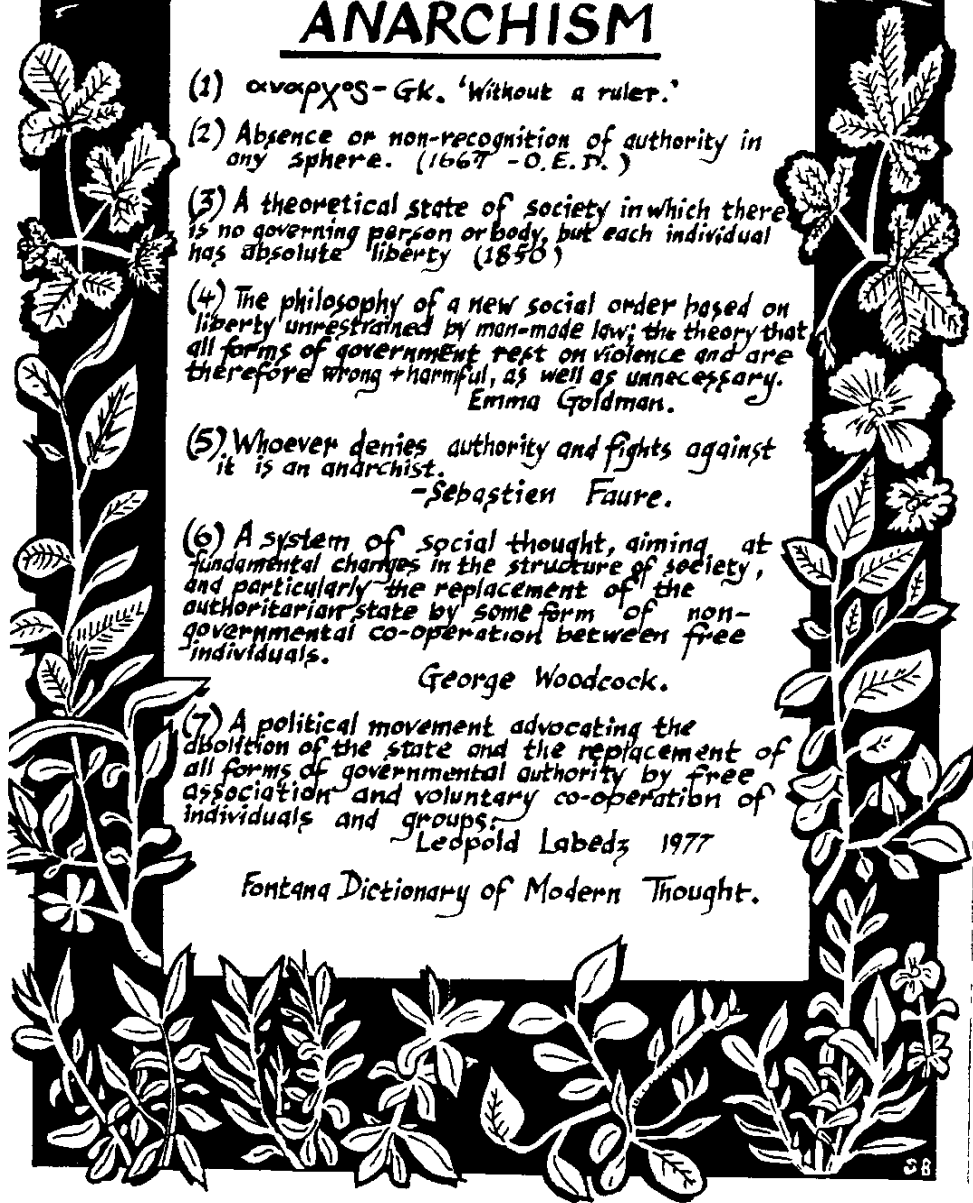 ANARCHISM
(1) αναρχος - Gk. 'Without a ruler.'
(2) Absence or non-recognition of authority in
any sphere. (1667 - O.E.D.)
(3) A theoretical state of society in which there
is no governing person or body, but each individual
has absolute liberty (1850)
(4) The philosophy of a new social order based on
liberty unrestrained by man-made law; the theory that
all forms of government rest on violence and are
therefore wrong + harmful, as well as unnecessary.
Emma Goldman.
(5) Whoever denies authority and fights against
it is an anarchist.
- Sebastien Faure.
(6) A system of social thought, aiming at
fundamental changes in the structure of society,
and particularly the replacement of the
authoritarian state by some form of non-
governmental co-operation between free
individuals.
George Woodcock.
(7) A political movement advocating the
abolition of the state and the replacement of
all forms of governmental authority by free
association and voluntary co-operation of
individuals and groups:
Leopold Labedz 1977
Fontana Dictionary of Modern Thought.
SB